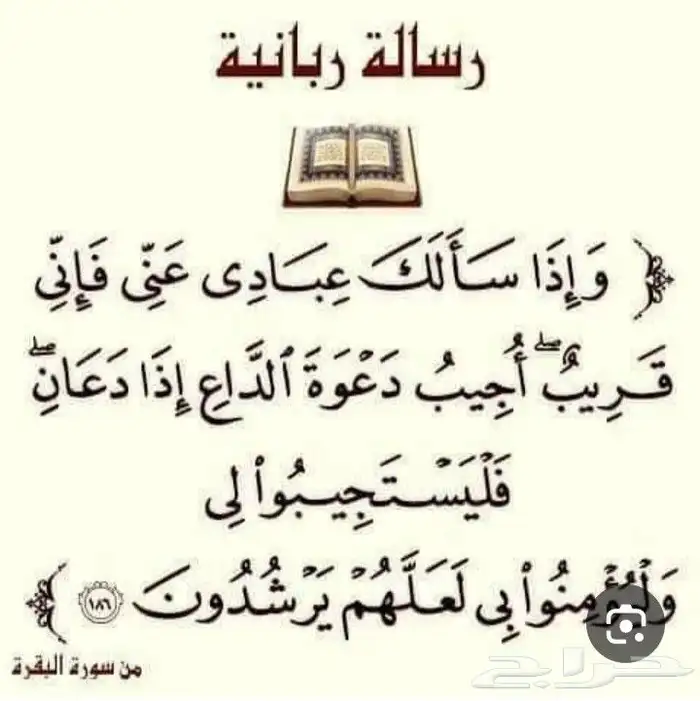 رسالة ربانية
﴿ وَإِذَا سَأَلَكَ عِبَادِى عَنِّى فَإِنِّى
قَرِيبٌ ۖ أُجِيبُ دَعْوَةَ ٱلدَّاعِ إِذَا دَعَانِ ۖ
فَلْيَسْتَجِيبُوا۟ لِى
وَلْيُؤْمِنُوا۟ بِى لَعَلَّهُمْ يَرْشُدُونَ ١٨٦ ﴾
من سورة البقرة
حراج